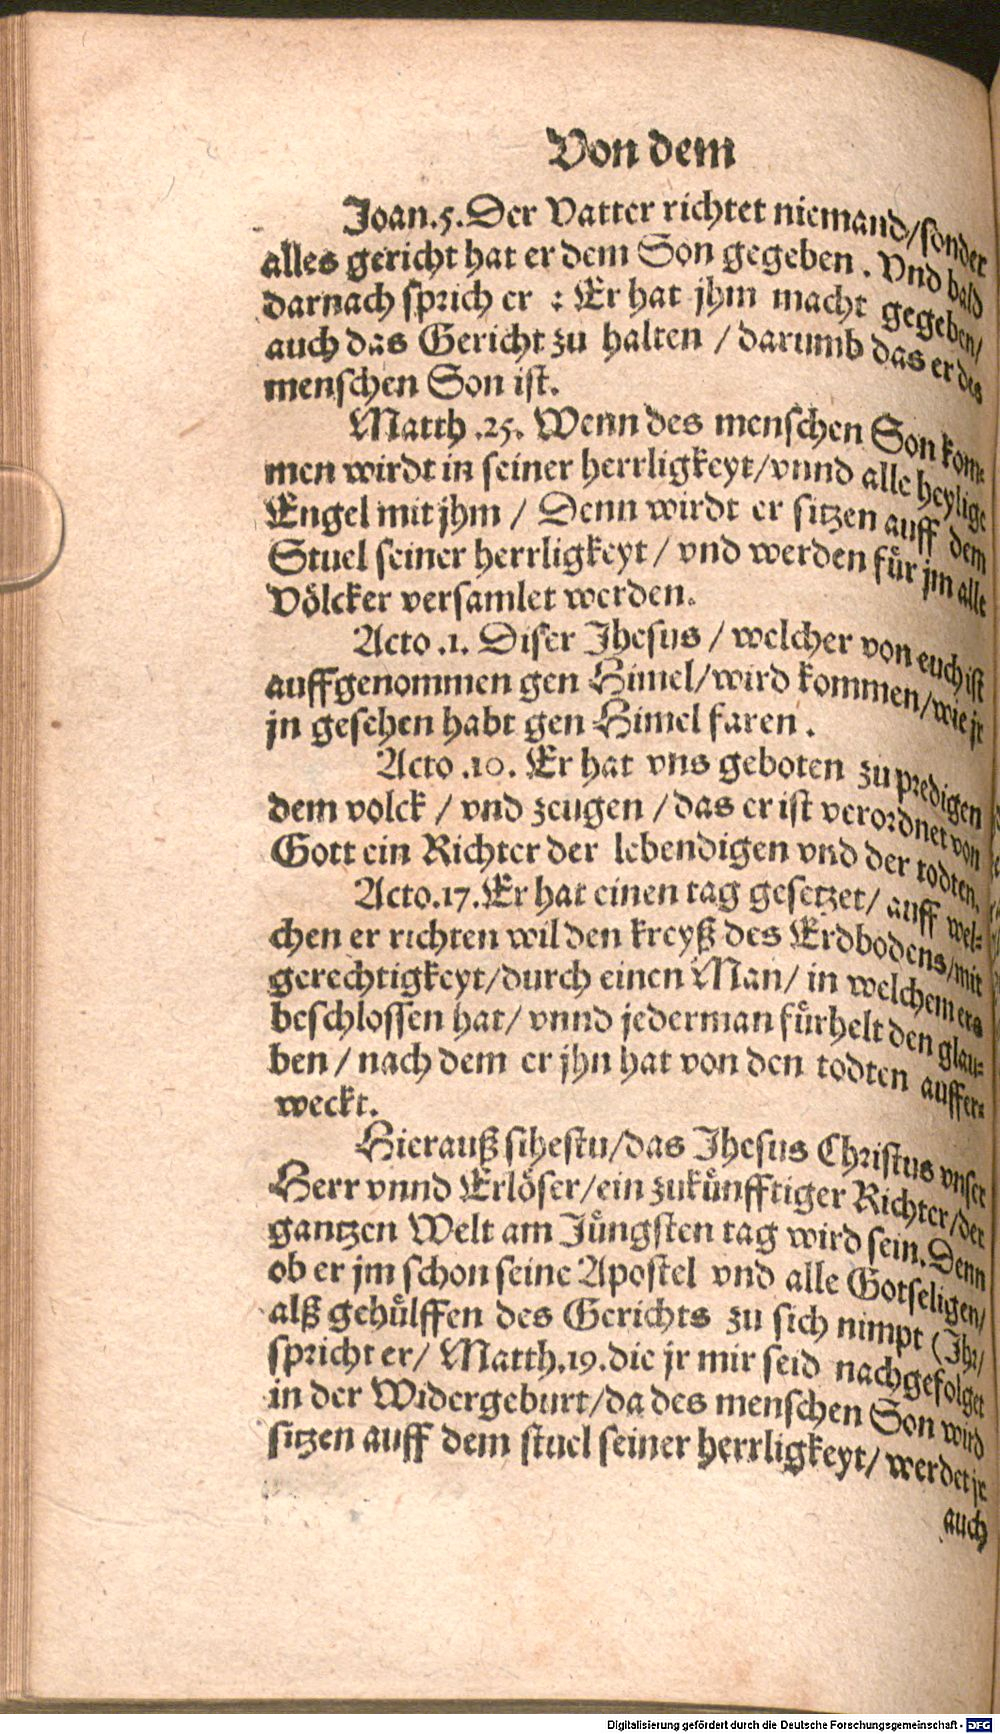 Von dem
Joan.5. Der Vatter richtet niemand/sonder
alles gericht hat er dem Son gegeben. Vnd bald
darnach sprich er : Er hat jhm macht gegeben/
auch das Gericht zu halten / darumb das er des
menschen Son ist.
Matth .25. Wenn des menschen Son kom-
men wirdt in seiner herrligkeyt/vnnd alle heylige
Engel mit jhm / Denn wirdt er sitzen auff dem
Stuel seiner herrligkeyt / vnd werden für jm alle
Völcker versamlet werden.
Acto .1. Diser Jhesus / welcher von euch ist
auffgenommen gen Himel/wird kommen/wie jr
jn gesehen habt gen Himel faren .
Acto .10. Er hat vns geboten zu predigen
dem volck / vnd zeugen / das er ist verordnet von
Gott ein Richter der lebendigen vnd der todten.
Acto.17. Er hat einen tag gesetzet/ auff wel-
chen er richten wil den kreyß des Erdbodens/mit
gerechtigkeyt/durch einen Man/ in welchem ers
beschlossen hat/ vnnd jederman fürhelt den glau-
ben / nach dem er jhn hat von den todten auffer-
weckt.
Hierauß sihestu/das Jhesus Christus vnser
Herr vnnd Erlöser/ein zukünfftiger Richter/der
gantzen Welt am Jüngsten tag wird sein. Denn
ob er jm schon seine Apostel vnd alle Gotseligen/
alß gehülffen des Gerichts zu sich nimpt (Jhr/
spricht er/ Matth.19. die jr mir seid nachgefolget
in der Widergeburt/da des menschen Son wird
sitzen auff dem stuel seiner herrligkeyt/ werdet jr
auch
Digitalisierung gefördert durch die Deutsche Forschungsgemeinschaft - DFG